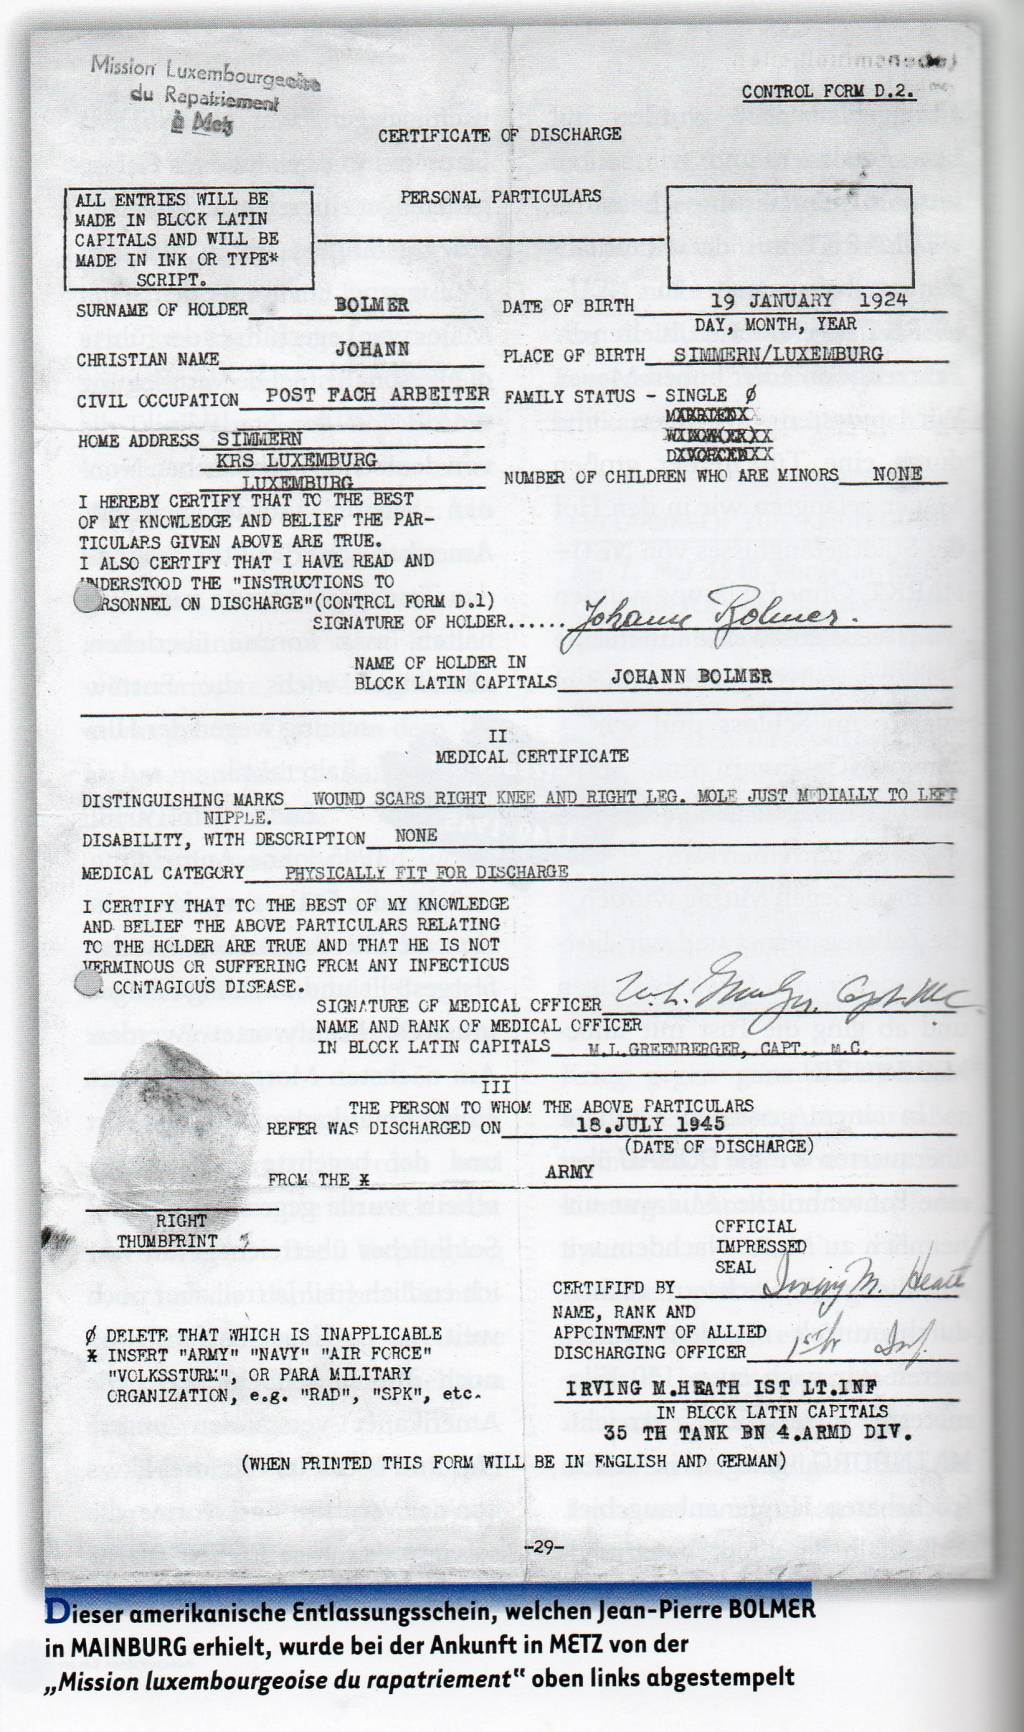 Mission Luxembourgeoise
du Rapatriement
à Metz
CONTROL FORM D.2.
CERTIFICATE OF DISCHARGE
ALL ENTRIES WILL BE
MADE IN BLOCK LATIN
CAPITALS AND WILL BE
MADE IN INK OR TYPE*
SCRIPT.
PERSONAL PARTICULARS
SURNAME OF HOLDER BOLMER DATE OF BIRTH 19 JANUARY 1924
DAY, MONTH, YEAR
CHRISTIAN NAME JOHANN PLACE OF BIRTH SIMMERN/LUXEMBURG
CIVIL OCCUPATION POST FACH ARBEITER FAMILY STATUS - SINGLE Ø
MARRIED
WIDOW(ER)
DIVORCED
HOME ADDRESS SIMMERN
KRS LUXEMBURG
LUXEMBURG
NUMBER OF CHILDREN WHO ARE MINORS NONE
I HEREBY CERTIFY THAT TO THE BEST
OF MY KNOWLEDGE AND BELIEF THE PAR-
TICULARS GIVEN ABOVE ARE TRUE.
I ALSO CERTIFY THAT I HAVE READ AND
UNDERSTOOD THE "INSTRUCTIONS TO
PERSONNEL ON DISCHARGE"(CONTROL FORM D.1)
SIGNATURE OF HOLDER...... Johann Bolmer.
NAME OF HOLDER IN
BLOCK LATIN CAPITALS JOHANN BOLMER
II
MEDICAL CERTIFICATE
DISTINGUISHING MARKS WOUND SCARS RIGHT KNEE AND RIGHT LEG. MOLE JUST MEDIALLY TO LEFT
NIPPLE.
DISABILITY, WITH DESCRIPTION NONE
MEDICAL CATEGORY PHYSICALLY FIT FOR DISCHARGE
I CERTIFY THAT TO THE BEST OF MY KNOWLEDGE
AND BELIEF THE ABOVE PARTICULARS RELATING
TO THE HOLDER ARE TRUE AND THAT HE IS NOT
VERMINOUS OR SUFFERING FROM ANY INFECTIOUS
CONTAGIOUS DISEASE.
SIGNATURE OF MEDICAL OFFICER Capt. MC
NAME AND RANK OF MEDICAL OFFICER
IN BLOCK LATIN CAPITALS M.L.GREENBERGER, CAPT., M.C.
III
THE PERSON TO WHOM THE ABOVE PARTICULARS
REFER WAS DISCHARGED ON 18.JULY 1945
(DATE OF DISCHARGE)
FROM THE * ARMY
RIGHT
THUMBPRINT
OFFICIAL
IMPRESSED
SEAL
CERTIFIED BY Irving M. Heath
NAME, RANK AND
APPOINTMENT OF ALLIED
DISCHARGING OFFICER 1st Lt Inf.
IRVING M.HEATH 1ST LT.INF
IN BLOCK LATIN CAPITALS
35 TH TANK BN 4.ARMD DIV.
Ø DELETE THAT WHICH IS INAPPLICABLE
* INSERT "ARMY" "NAVY" "AIR FORCE"
"VOLKSSTURM", OR PARA MILITARY
ORGANIZATION, e.g. "RAD", "SPK", etc.
(WHEN PRINTED THIS FORM WILL BE IN ENGLISH AND GERMAN)
-29-
Dieser amerikanische Entlassungsschein, welchen Jean-Pierre BOLMER
in MAINBURG erhielt, wurde bei der Ankunft in METZ von der
„Mission luxembourgeoise du rapatriement“ oben links abgestempelt